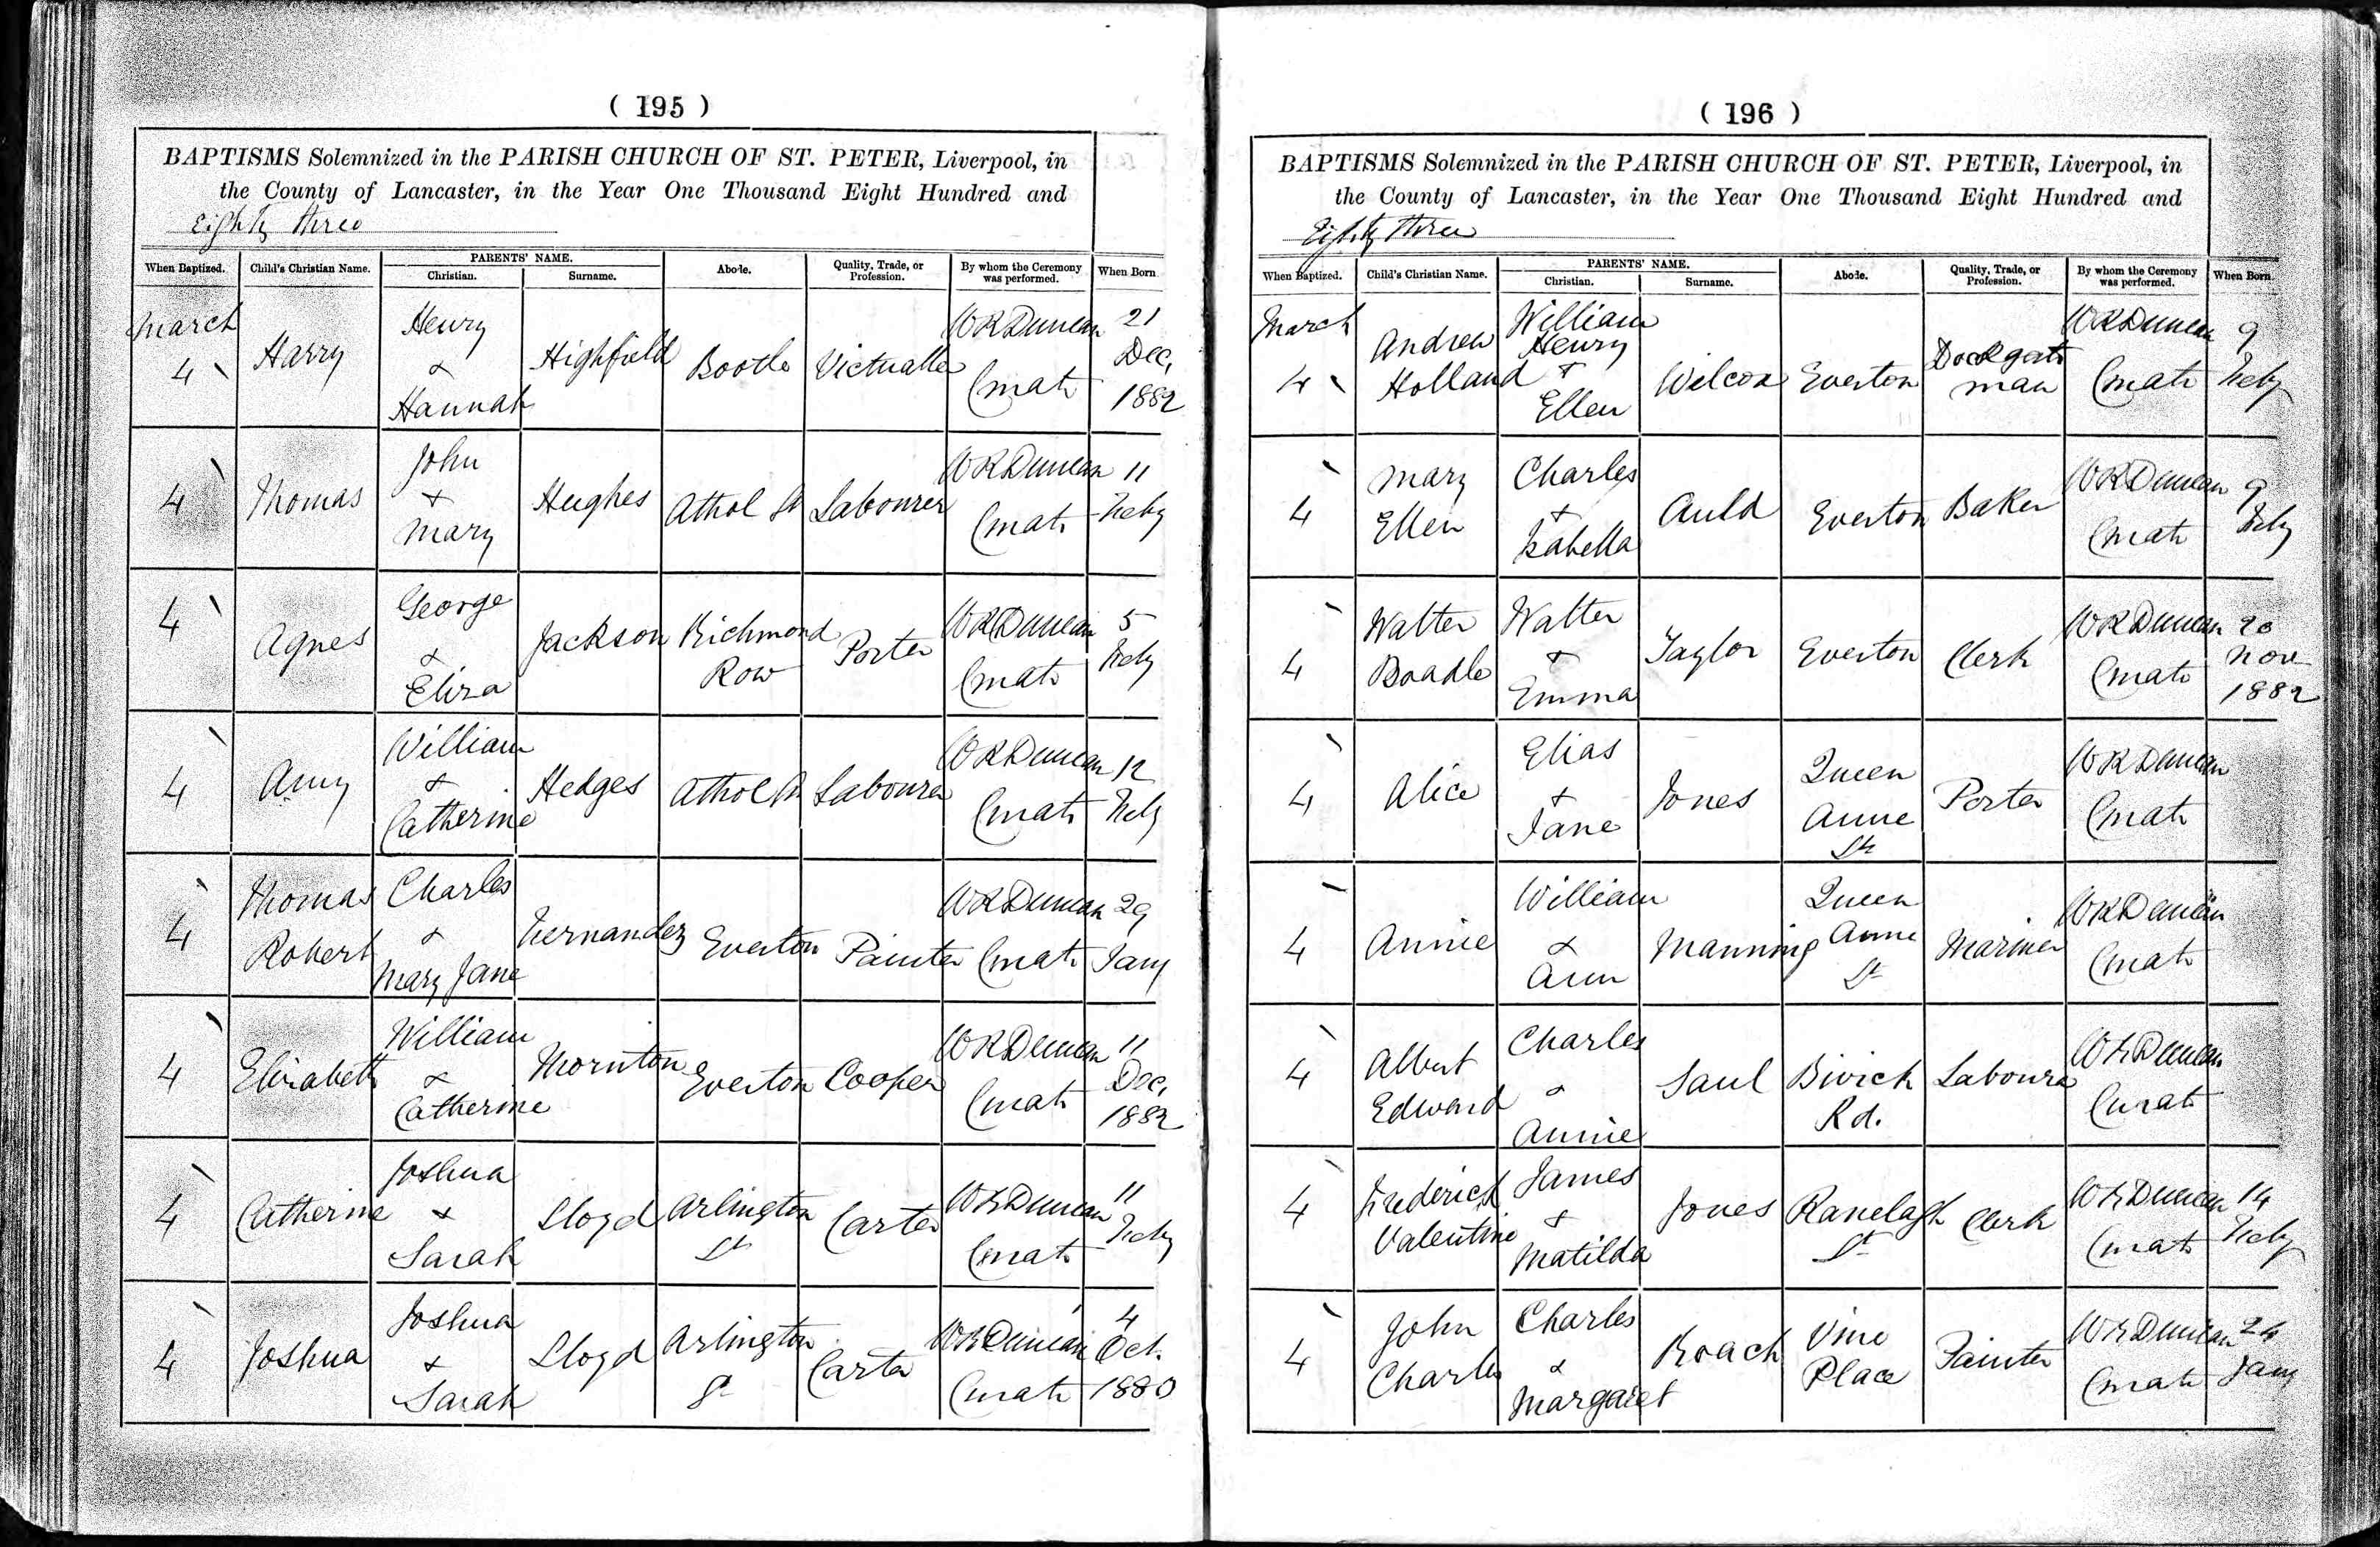 ( 195 )
BAPTISMS Solemnized in the PARISH CHURCH OF ST. PETER, Liverpool, in
the County of Lancaster, in the Year One Thousand Eight Hundred and
Eighty three
When Baptized. Child's Christian Name. PARENTS' NAME. Christian. Surname. Abode. Quality, Trade, or Profession. By whom the Ceremony was performed. When Born
March 4 Harry Henry & Hannah Highfield Bootle Victualler W R Duncan Curate 21 Dec, 1882
4 Thomas John + Mary Hughes Athol St Labourer W R Duncan Curate 11 Feby
4 Agnes George & Eliza Jackson Richmond Row Porter W R Duncan Curate 5 Feby
4 Amy William & Catherine Hedges Athol St Labourer W R Duncan Curate 12 Feby
4 Thomas Robert Charles & Mary Jane Fernandez Everton Painter W R Duncan Curate 29 Jany
4 Elizabeth William & Catherine Thornton Everton Cooper W R Duncan Curate 11 Dec, 1882
4 Catherine Joshua + Sarah Lloyd Arlington St Carter W R Duncan Curate 11 Feby
4 Joshua Joshua + Sarah Lloyd Arlington St Carter W R Duncan Curate 4 Oct. 1880
( 196 )
BAPTISMS Solemnized in the PARISH CHURCH OF ST. PETER, Liverpool, in
the County of Lancaster, in the Year One Thousand Eight Hundred and
Eighty three
When Baptized. Child's Christian Name. PARENTS' NAME. Christian. Surname. Abode. Quality, Trade, or Profession. By whom the Ceremony was performed. When Born
March 4 Andrew Holland William Henry + Ellen Wilcox Everton Dock gate man W R Duncan Curate 9 Feby
4 Mary Ellen Charles + Isabella Auld Everton Baker W R Duncan Curate 9 Feby
4 Walter Boadle Walter + Emma Taylor Everton Clerk W R Duncan Curate 20 Nov 1882
4 Alice Elias + Jane Jones Queen Anne St Porter W R Duncan Curate
4 Annie William & Ann Manning Queen Anne St Mariner W R Duncan Curate
4 Albert Edward Charles & Annie Saul Rd. Labourer W R Duncan Curate
4 Frederick Valentine James + Matilda Jones Ranelagh St Clerk W R Duncan Curate 14 Feby
4 John Charles Charles & Margaret Roach Vine Place Painter W R Duncan Curate 24 Jany